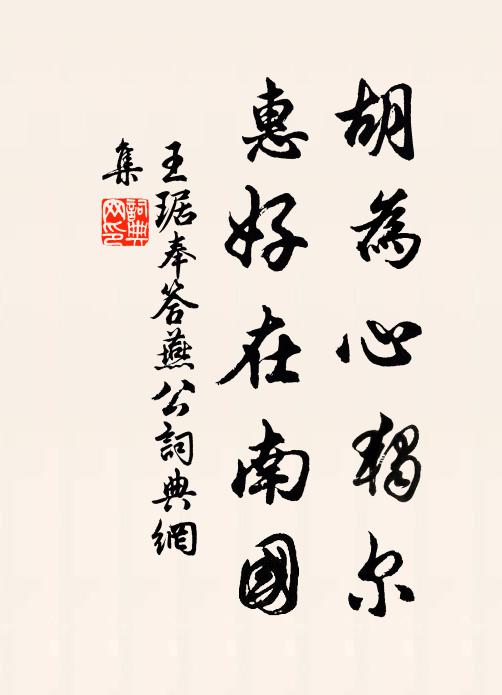 胡為心獨尔
惠好在南國
王琚奉答燕公詞典網
集
詞典
网印